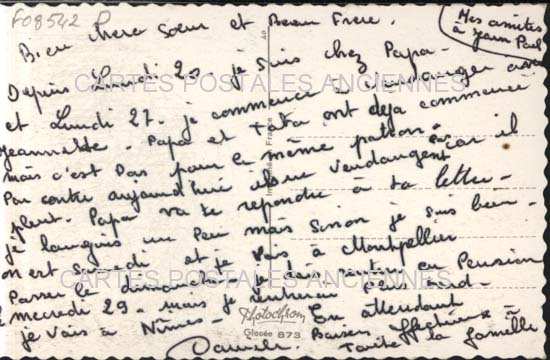 F08542 P
Mes amitiés
à Jean Paul
Bien chère Soeur et Beau Frère.
Depuis Lundi 20, je suis chez Papa-
et Lundi 27. je commence à vendanger avec
Jeannette. Papa et Tata ont déjà commencé
mais c'est pas pour le même patron.
Par contre aujourd'hui ils ne vendangent pas car il
pleut. Papa va te répondre à ta lettre-
je languis un peu mais sinon je suis bien-
on est Samedi et je vais à Montpellier
Passer le dimanche je
rentrerai en Pension
mercredi 29. mais je
je vais à Nîmes. En attendant
Baisers affectueux à
la famille
CARTES POSTALES ANCIENNES
CARTES POSTALES ANCIENNES
Photochrom
Glacée 873